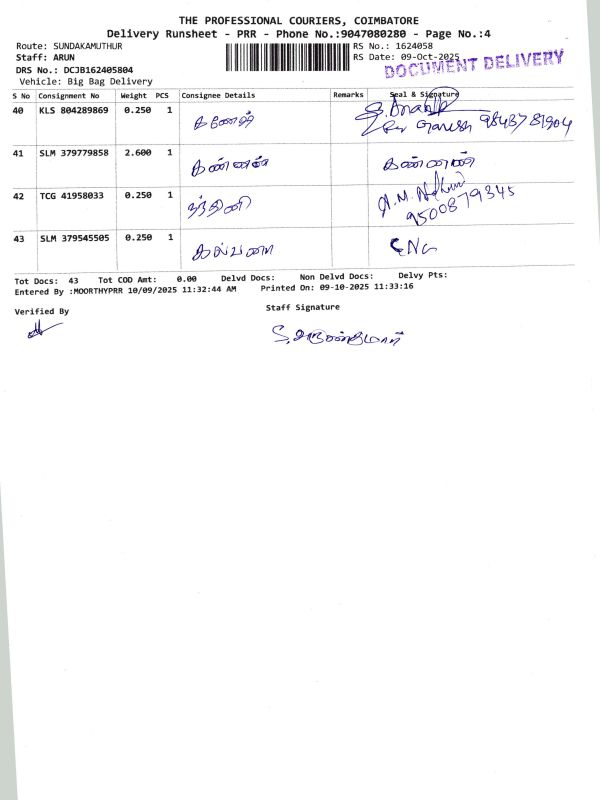 THE PROFESSIONAL COURIERS, COIMBATORE
Delivery Runsheet - PRR - Phone No.:9047080280 - Page No.:4
Route: SUNDAKAMUTHUR
RS No.: 1624058
Staff: ARUN
RS Date: 09-Oct-2025
DRS No.: DCJB162405804
DOCUMENT DELIVERY
Vehicle: Big Bag Delivery
S No Consignment No Weight PCS Consignee Details Remarks Seal & Signature
40 KLS 804289869 0.250 1 கணேஷ்
Ganesh 98437 81904
41 SLM 379779858 2.600 1 கண்ணன் கண்ணன்
42 TCG 41958033 0.250 1 நந்தினி
9500879345
43 SLM 379545505 0.250 1 கல்பனா
Tot Docs: 43 Tot COD Amt: 0.00 Delvd Docs: Non Delvd Docs: Delvy Pts:
Entered By :MOORTHYPRR 10/09/2025 11:32:44 AM Printed On: 09-10-2025 11:33:16
Verified By
Staff Signature
S. அருண்குமார்